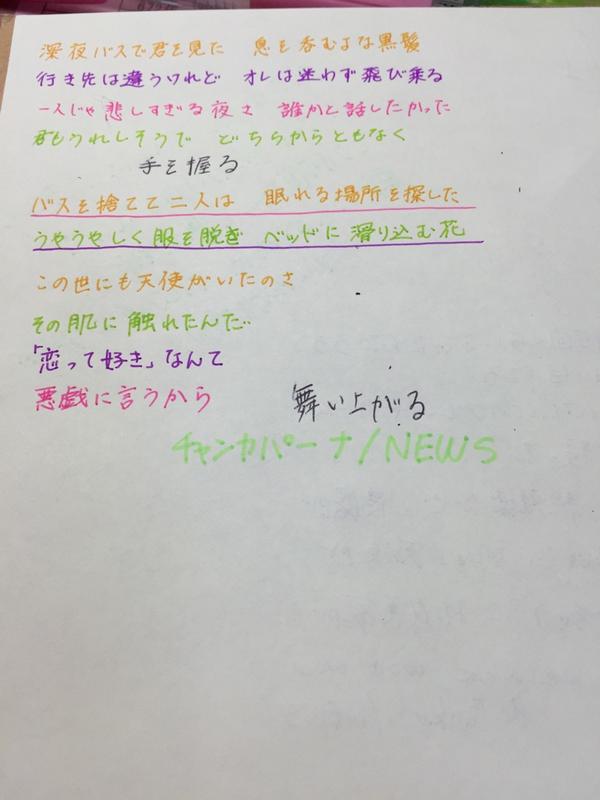 深夜バスで君を見た 息を呑むよな黒髪
行き先は違うけれど オレは迷わず飛び乗る
一人じゃ悲しすぎる夜さ 誰かと話したかった
君もうれしそうで どちらからともなく
手を握る
バスを捨てて二人は 眠れる場所を探した
うやうやしく服を脱ぎ ベッドに滑り込む花
この世にも天使がいたのさ
その肌に触れたんだ
「恋って好き」なんて
悪戯に言うから
舞い上がる
チャンカパーナ/NEWS